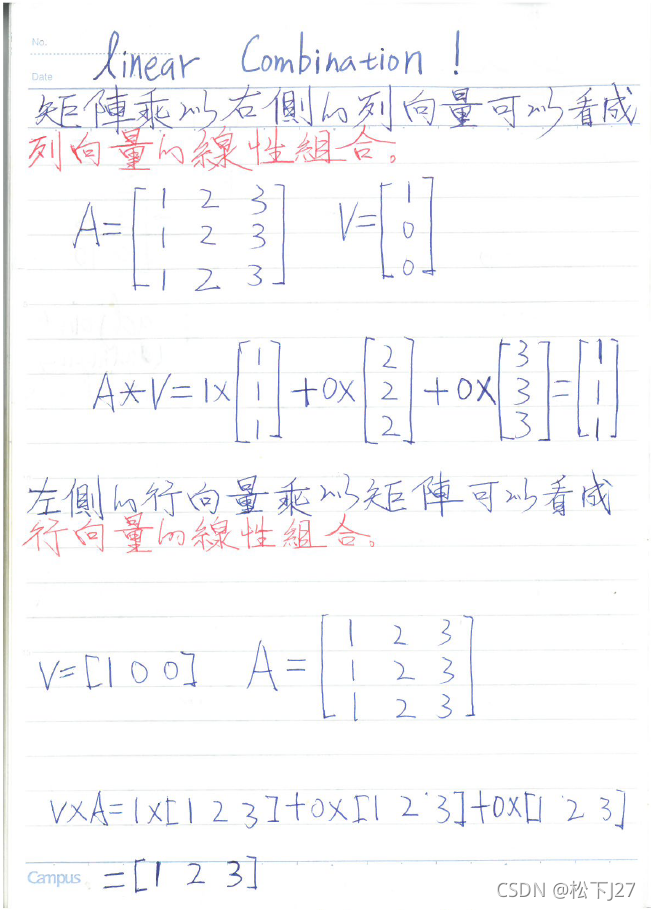 No.
Date
linear Combination !
矩陣乘以右側的列向量可以看成
列向量的線性組合。
A= [1 2 3
1 2 3
1 2 3] V= [1
0
0]
A*V=1× [1
1
1] +0× [2
2
2] +0× [3
3
3] = [1
1
1]
左側的行向量乘以矩陣可以看成
行向量的線性組合。
V=[1 0 0] A= [1 2 3
1 2 3
1 2 3]
V×A=1×[1 2 3]+0×[1 2 3]+0×[1 2 3]
=[1 2 3]
Campus
CSDN @松下J27